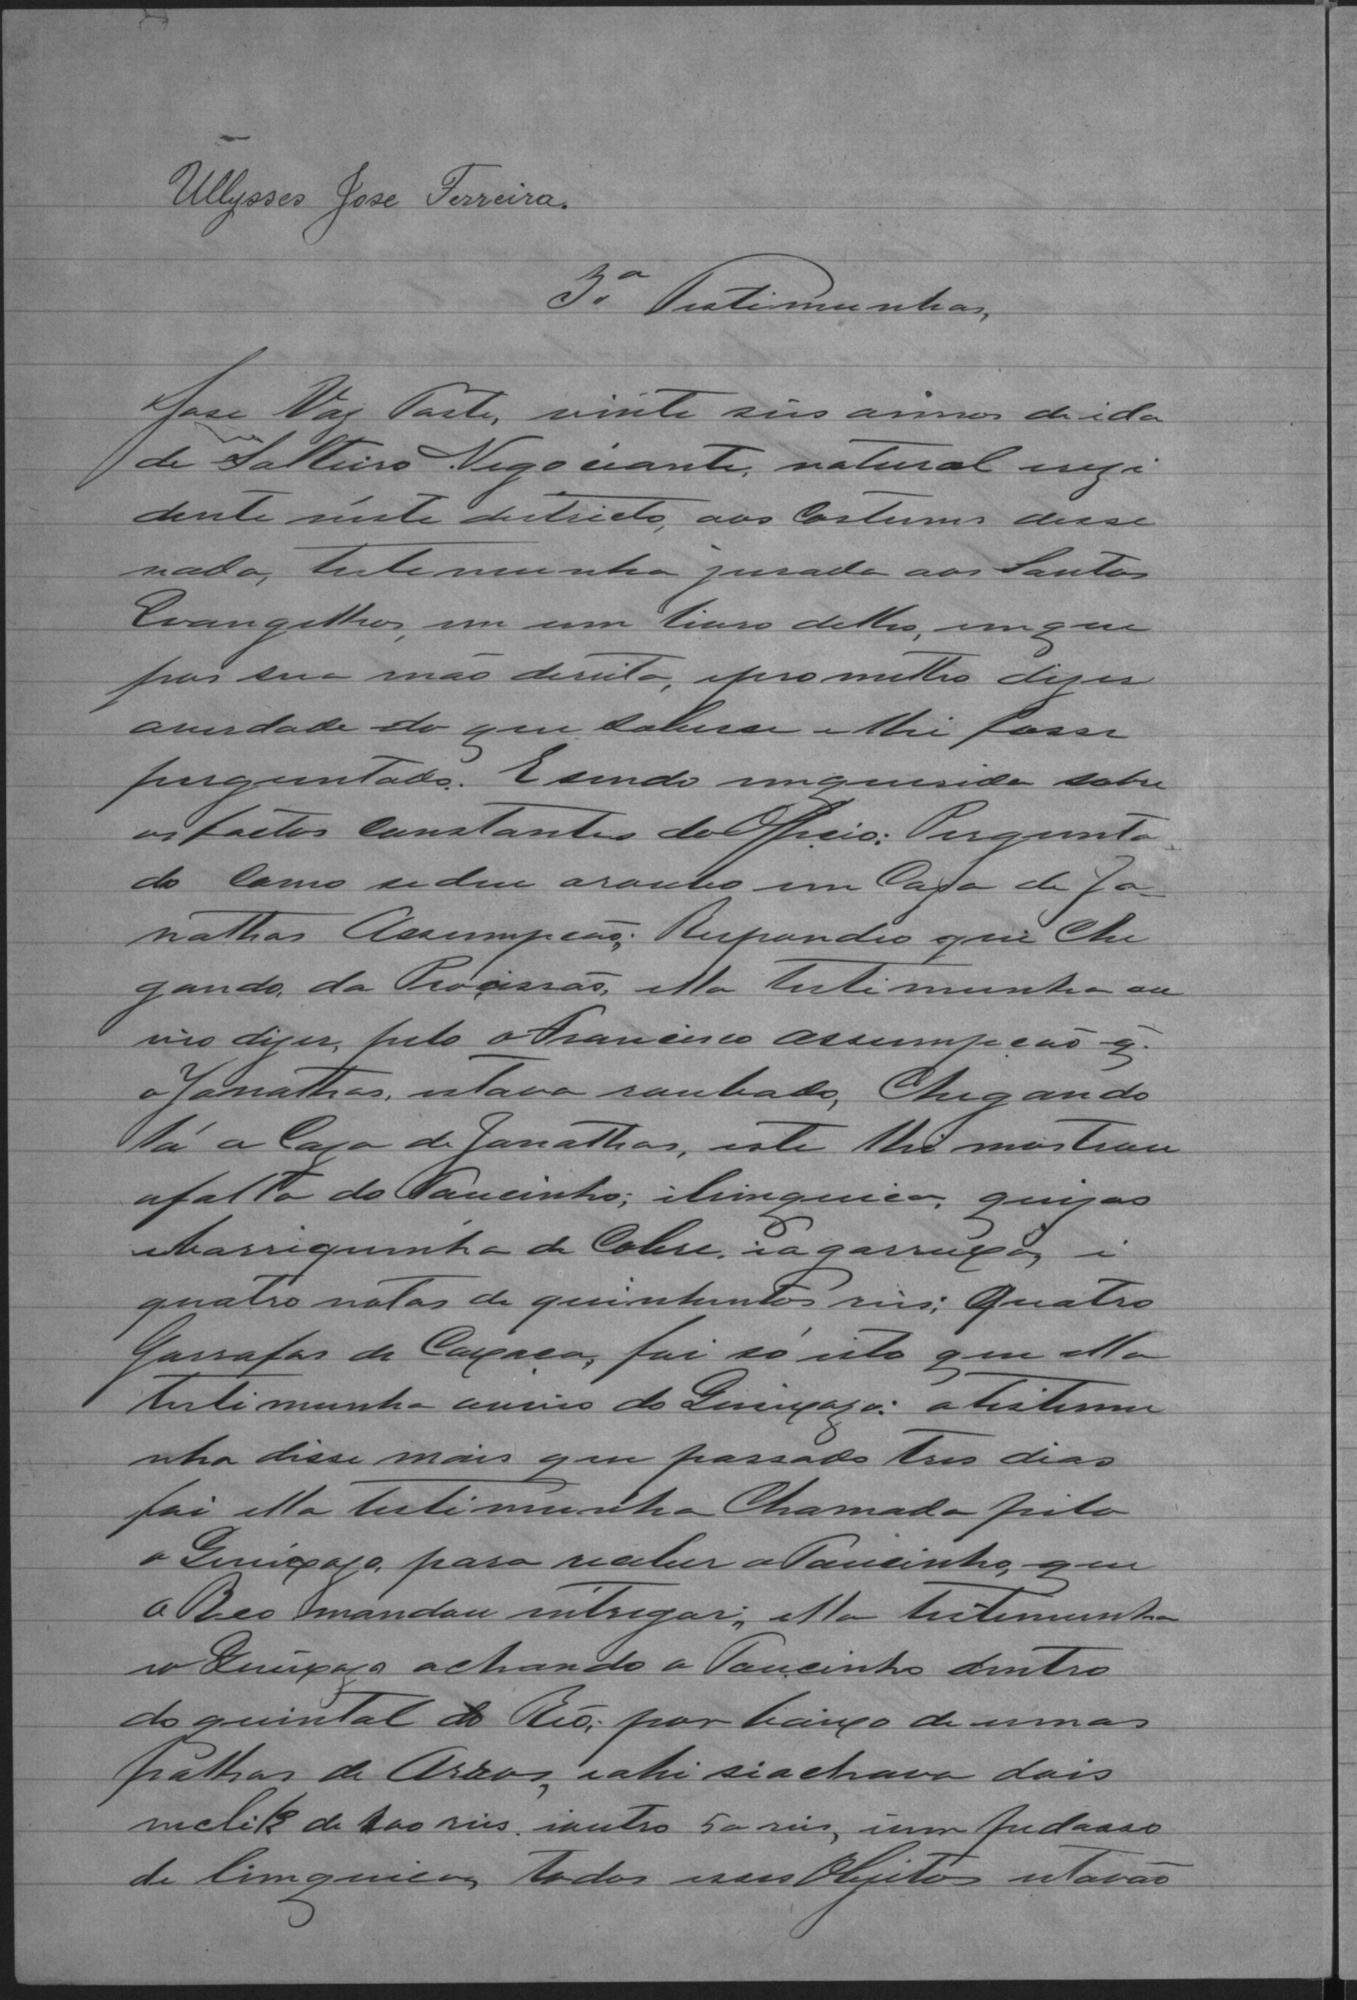 Ullysses Jose Ferreira.
3.ª Testimunhas,
Jose Vaz Paste, vinte seis annos de ida
de Solteiro Negociante, natural erezi
dente néste districto, aos Costumes disse
nada, testemunha jurada aos Santos
Evangelhos, em um livro delles, emque
pos sua mão dereita, eprometteo dizer
averdade do que soubesse e lhe fosse
perguntado. E sendo inquerida sobre
os factos Constantes do Officio; Pergunta
do Como sedeu aroubo em Caza de Jo-
nathas Assumpção; Respondeo que Che
gando, da Procissão, ella testimunha ou
vio dizer, pelo o Francisco assumpção q.
o Jonathas, estava roubado, Chegando
lá a Caza de Jonathas, este lhe mostrou
afalta do Toucinho; eLinguica, queijos
ebarriquinha de Cobre, eagarruxa, i
quatro notas de quinhentos reis; Quatro
Garrafas de Caxaca, foi só isto que ella
testimunha ouvio do: atistemu
nha disse mais que passado tres dias
foi ella testimunha Chamada pelo
o para receber o Toucinho, que
o Reo mandou intregar; ella testemunha
eo achando o Toucinho dentro
do quintal do Réo; por baixo de umas
palhas de Arros, eahi siachava dois
de 100 reis. ioutro 50 reis, ium pedasso
de linguica, todos esses Objetos estavão